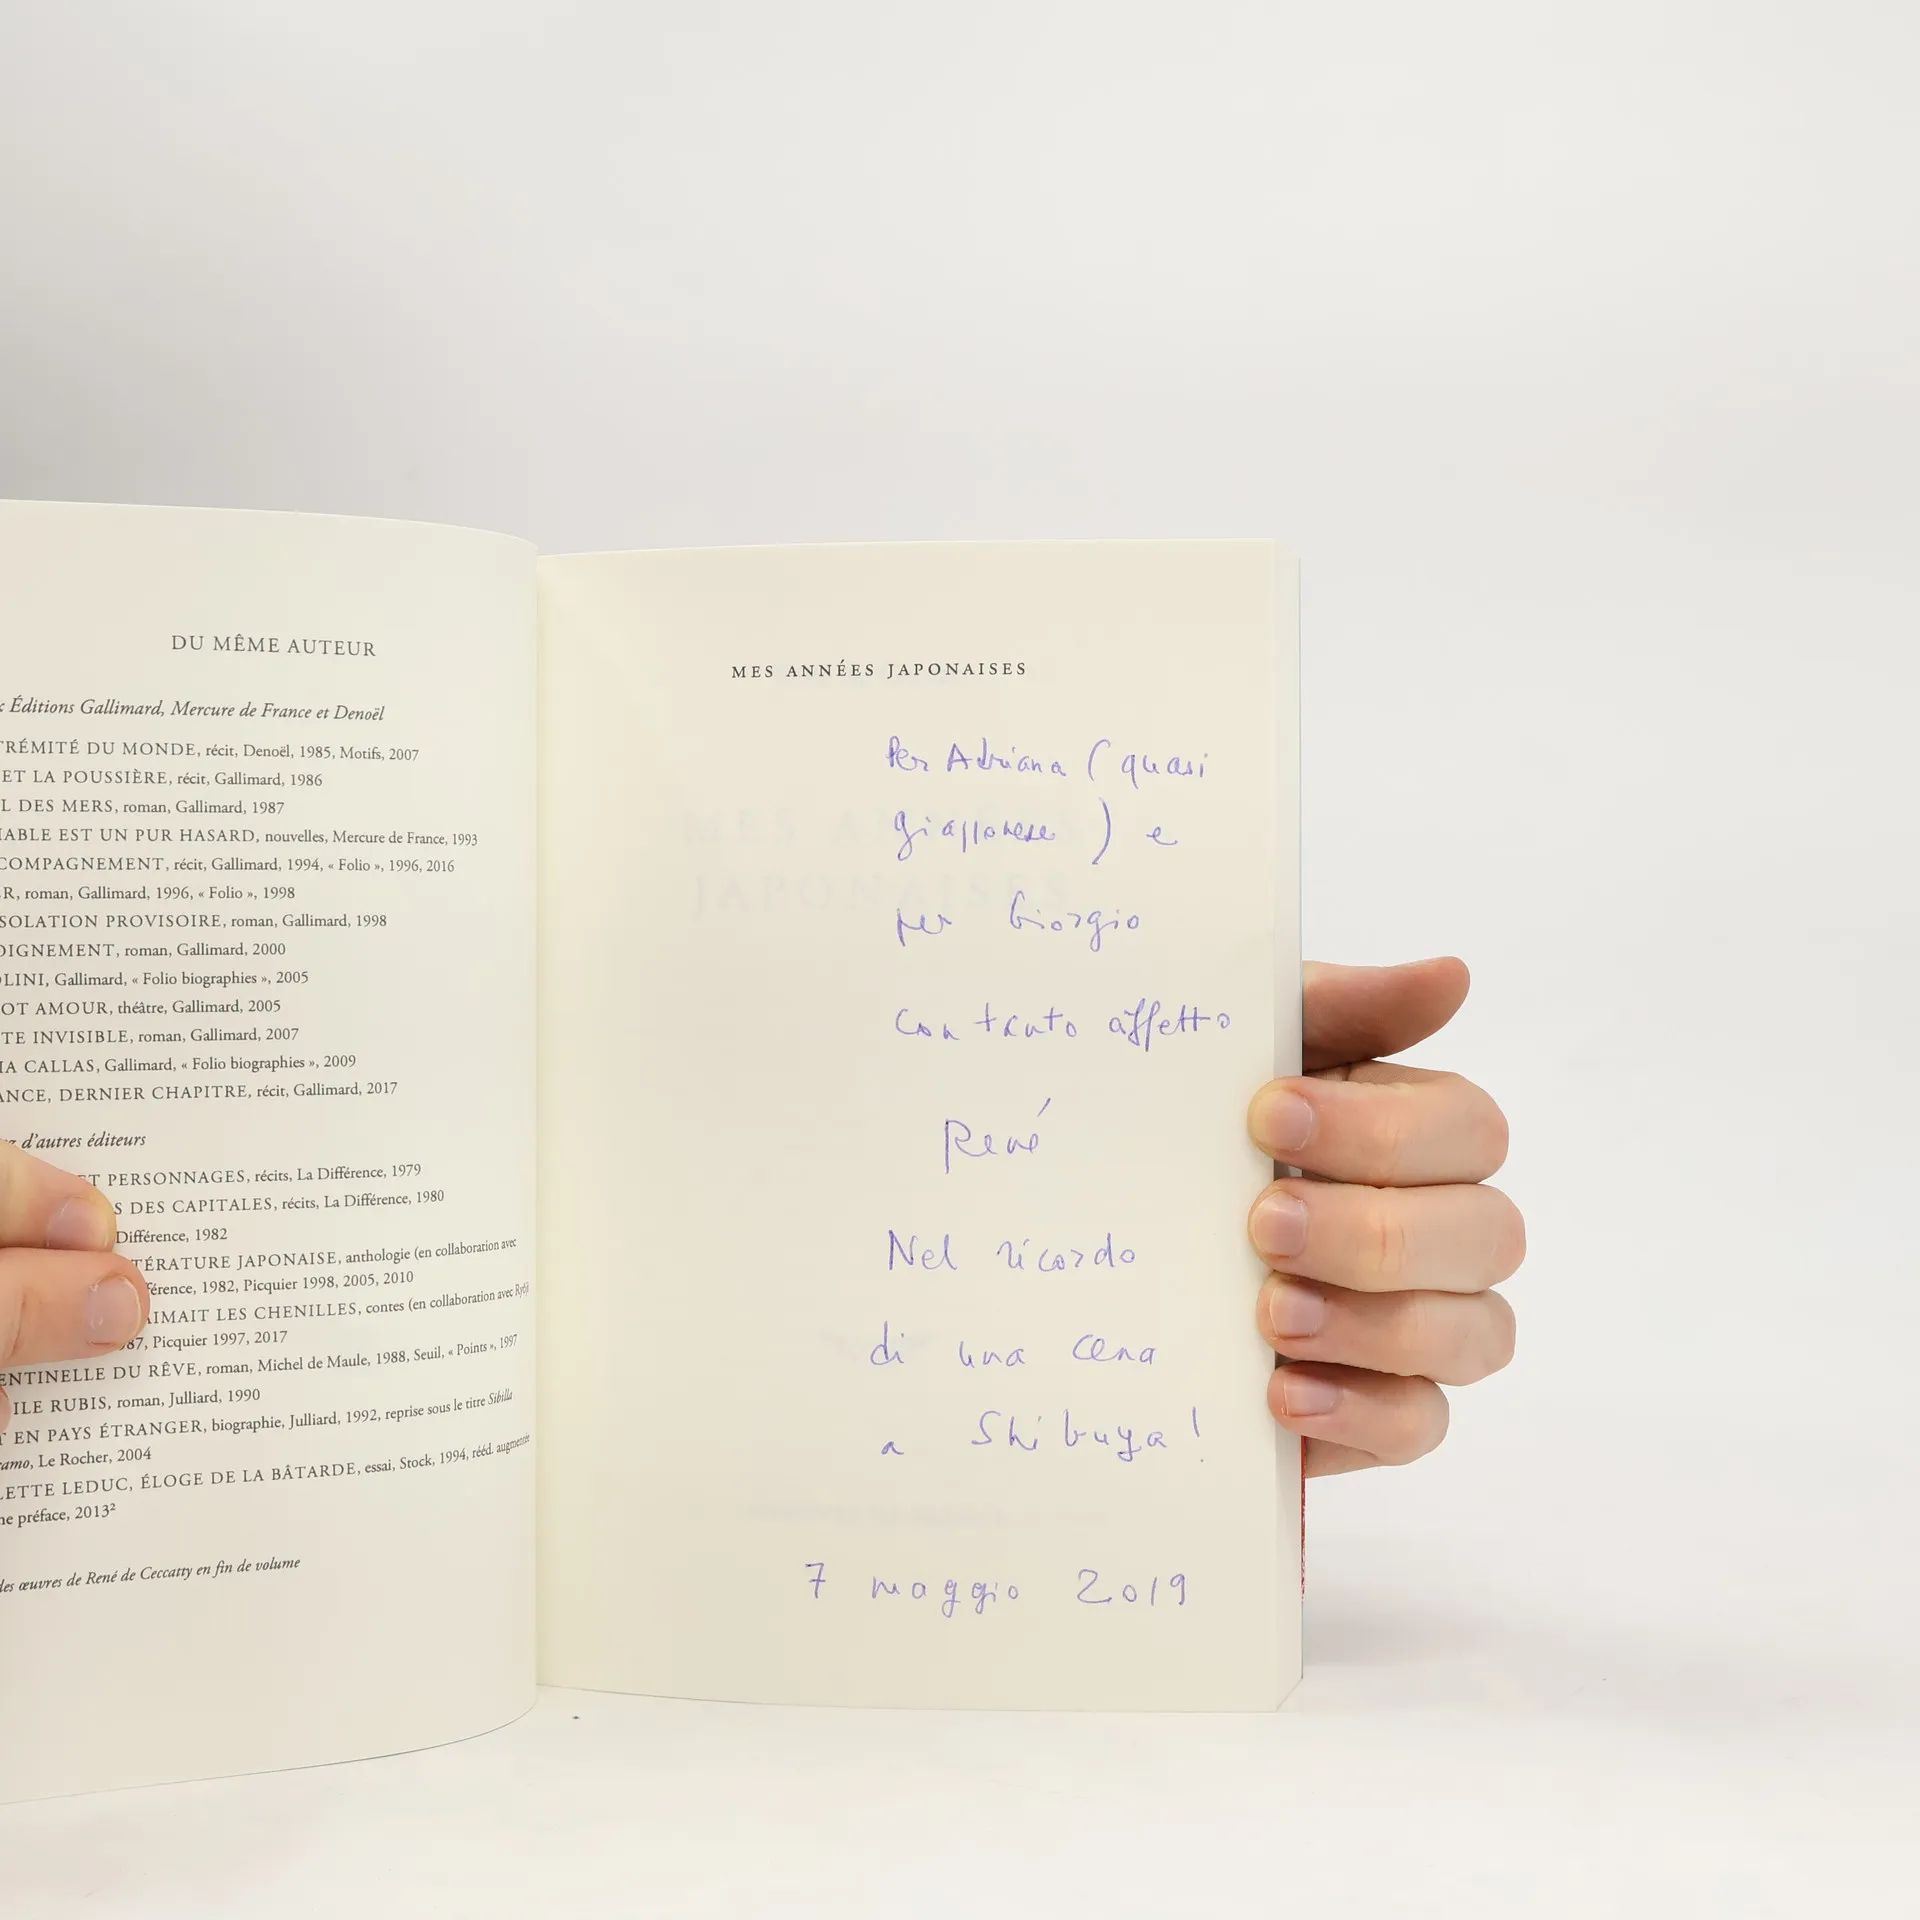 DU MÊME AUTEUR
Éditions Gallimard, Mercure de France et Denoël
TRÉMITÉ DU MONDE, récit, Denoël, 1985, Motifs, 2007
ET LA POUSSIÈRE, récit, Gallimard, 1986
L DES MERS, roman, Gallimard, 1987
IABLE EST UN PUR HASARD, nouvelles, Mercure de France, 1993
COMPAGNEMENT, récit, Gallimard, 1994, « Folio », 1996, 2016
ER, roman, Gallimard, 1996, « Folio », 1998
SOLATION PROVISOIRE, roman, Gallimard, 1998
OIGNEMENT, roman, Gallimard, 2000
OLINI, Gallimard, « Folio biographies », 2005
OT AMOUR, théâtre, Gallimard, 2005
TE INVISIBLE, roman, Gallimard, 2007
IA CALLAS, Gallimard, « Folio biographies », 2009
ANCE, DERNIER CHAPITRE, récit, Gallimard, 2017
d'autres éditeurs
ET PERSONNAGES, récits, La Différence, 1979
S DES CAPITALES, récits, La Différence, 1980
Différence, 1982
TÉRATURE JAPONAISE, anthologie (en collaboration avec
férence, 1982, Picquier 1998, 2005, 2010
AIMAIT LES CHENILLES, contes (en collaboration avec Ryôji
987, Picquier 1997, 2017
ENTINELLE DU RÊVE, roman, Michel de Maule, 1988, Seuil, « Points », 1997
ILE RUBIS, roman, Julliard, 1990
T EN PAYS ÉTRANGER, biographie, Julliard, 1992, reprise sous le titre Sibilla
ramo, Le Rocher, 2004
LETTE LEDUC, ÉLOGE DE LA BÂTARDE, essai, Stock, 1994, rééd. augmentée
ne préface, 2013²
des œuvres de René de Ceccatty en fin de volume
MES ANNÉES JAPONAISES
Per Adriana (quasi
giapponese) e
per Giorgio
con tanto affetto
René
Nel ricordo
di una cena
a Shibuya!
7 maggio 2019
MES ANNÉES
JAPONAISES